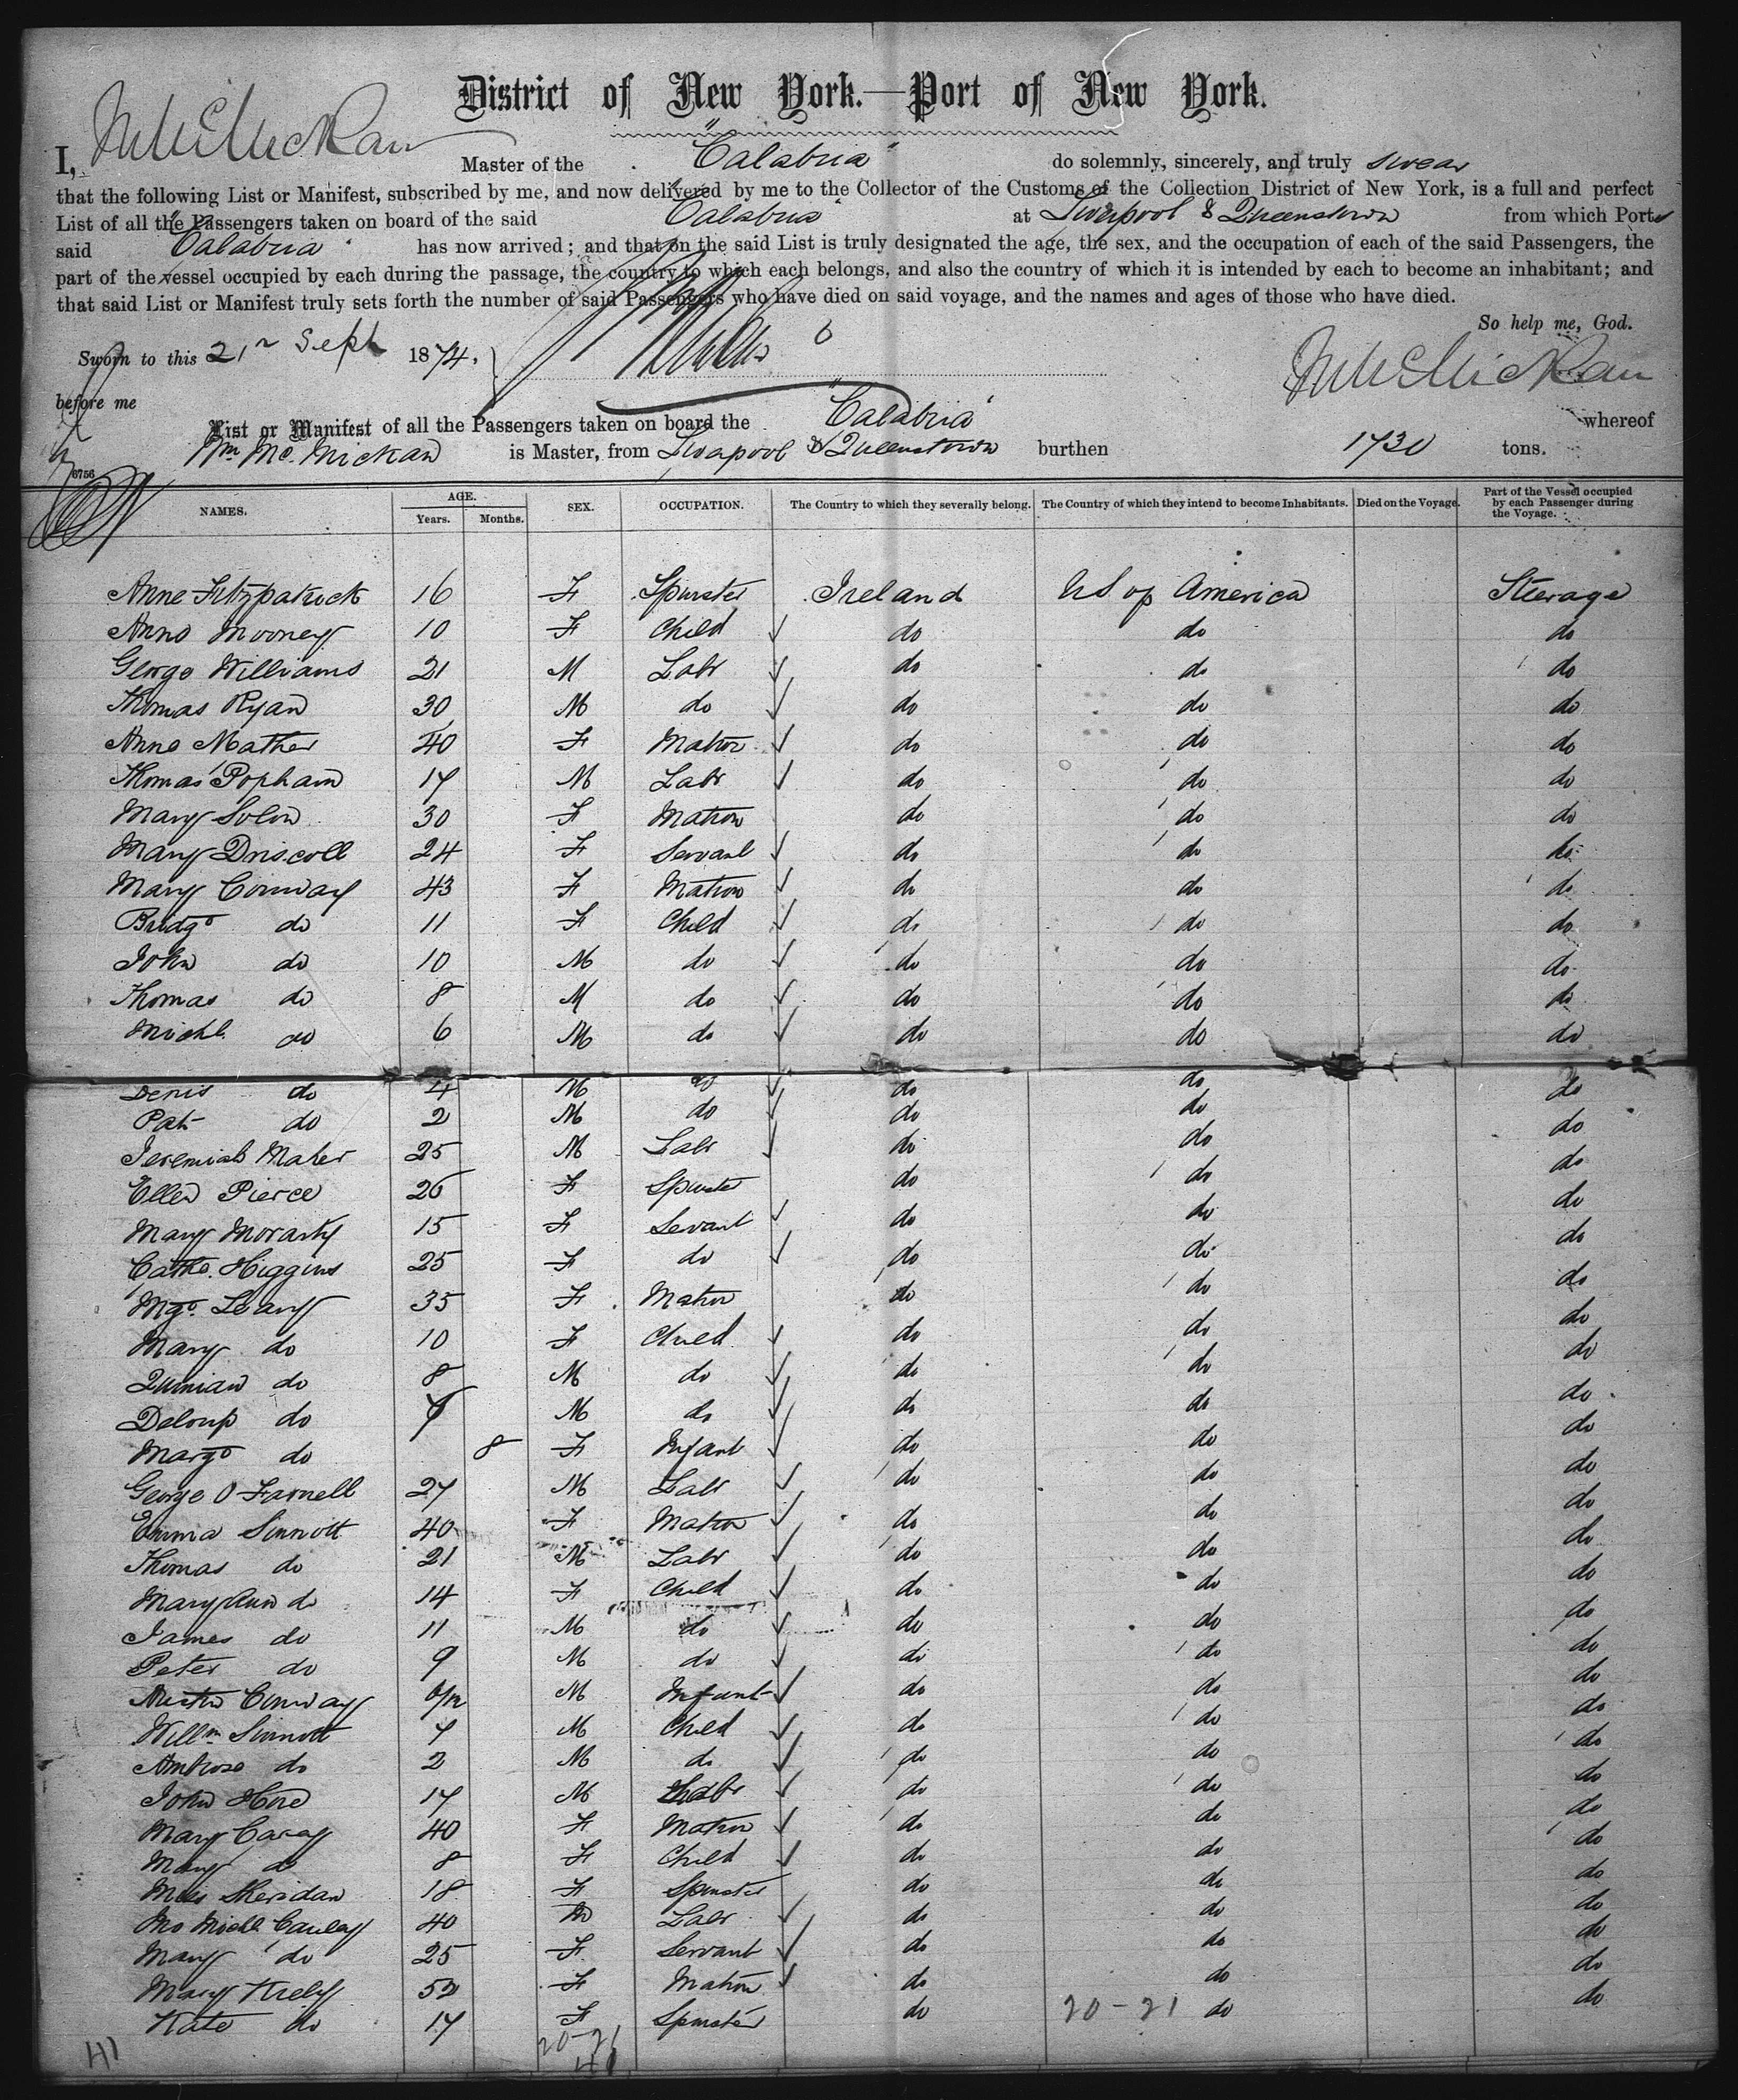 District of New York.—Port of New York.
I, Master of the "Calabria" do solemnly, sincerely, and truly swear
that the following List or Manifest, subscribed by me, and now delivered by me to the Collector of the Customs of the Collection District of New York, is a full and perfect
List of all the Passengers taken on board of the said "Calabria" at Liverpool & Queenstown from which Ports
said "Calabria" has now arrived; and that on the said List is truly designated the age, the sex, and the occupation of each of the said Passengers, the
part of the vessel occupied by each during the passage, the country to which each belongs, and also the country of which it is intended by each to become an inhabitant; and
that said List or Manifest truly sets forth the number of said Passengers who have died on said voyage, and the names and ages of those who have died.
So help me, God.
Sworn to this 21 Sept 1874.
before me
List or Manifest of all the Passengers taken on board the "Calabria" whereof
Wm Mc.Mickan is Master, from Liverpool & Queenstown burthen 1730 tons.
6756
NAMES. AGE. Years. Months. SEX. OCCUPATION. The Country to which they severally belong. The Country of which they intend to become Inhabitants. Died on the Voyage. Part of the Vessel occupied by each Passenger during the Voyage.
Anne Fitzpatrick 16 F Spinster Ireland US of America Steerage
Anne Mooney 10 F Child do do do
George Williams 21 M Labr do do do
Thomas Ryan 30 M do do do do
Anne Mather 40 F Matron do do do
Thomas Popham 17 M Labr do do do
Mary 30 F Matron do do do
Mary Driscoll 24 F Servant do do do
Mary Conway 43 F Matron do do do
Bridgt do 11 F Child do do do
John do 10 M do do do do
Thomas do 8 M do do do do
Michl do 6 M do do do do
Denis do 4 M do do do do
Pat do 2 M do do do do
Jeremiah Maher 25 M Labr do do do
Ellen Pierce 26 F Spinster do do do
Mary Morarty 15 F Servant do do do
Cathe. Higgins 25 F do do do do
Mgt. Leary 35 F Matron do do do
Mary do 10 F Child do do do
do 8 M do do do do
do M do do do do
Margt do 8 F Infant do do do
George O Farnell 27 M Labr do do do
Emma Sinnott 40 F Matron do do do
Thomas do 21 M Labr do do do
Mary Ann do 14 F Child do do do
James do 11 M do do do do
Peter do 9 M do do do do
Conway M Infant do do do
Willm Sinnott 7 M Child do do do
Ambrose do 2 M do do do do
John Hore 17 M Labr do do do
Mary Casey 40 F Matron do do do
Mary do 8 F Child do do do
Miss Sheridan 18 F Spinster do do do
Michl Cauley 40 M Labr do do do
Mary do 25 F Servant do do do
Mary Kiely 52 F Matron do do do
Kate do 17 F Spinster do do do
20-21
41 20-21
41